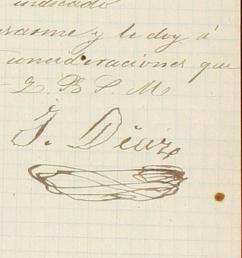 indicado
rarme y le doy á
consideraciones que
Q. B. S. M
J. Diaz